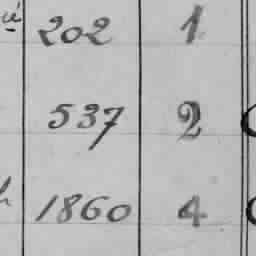 202 1
537 2
1860 4